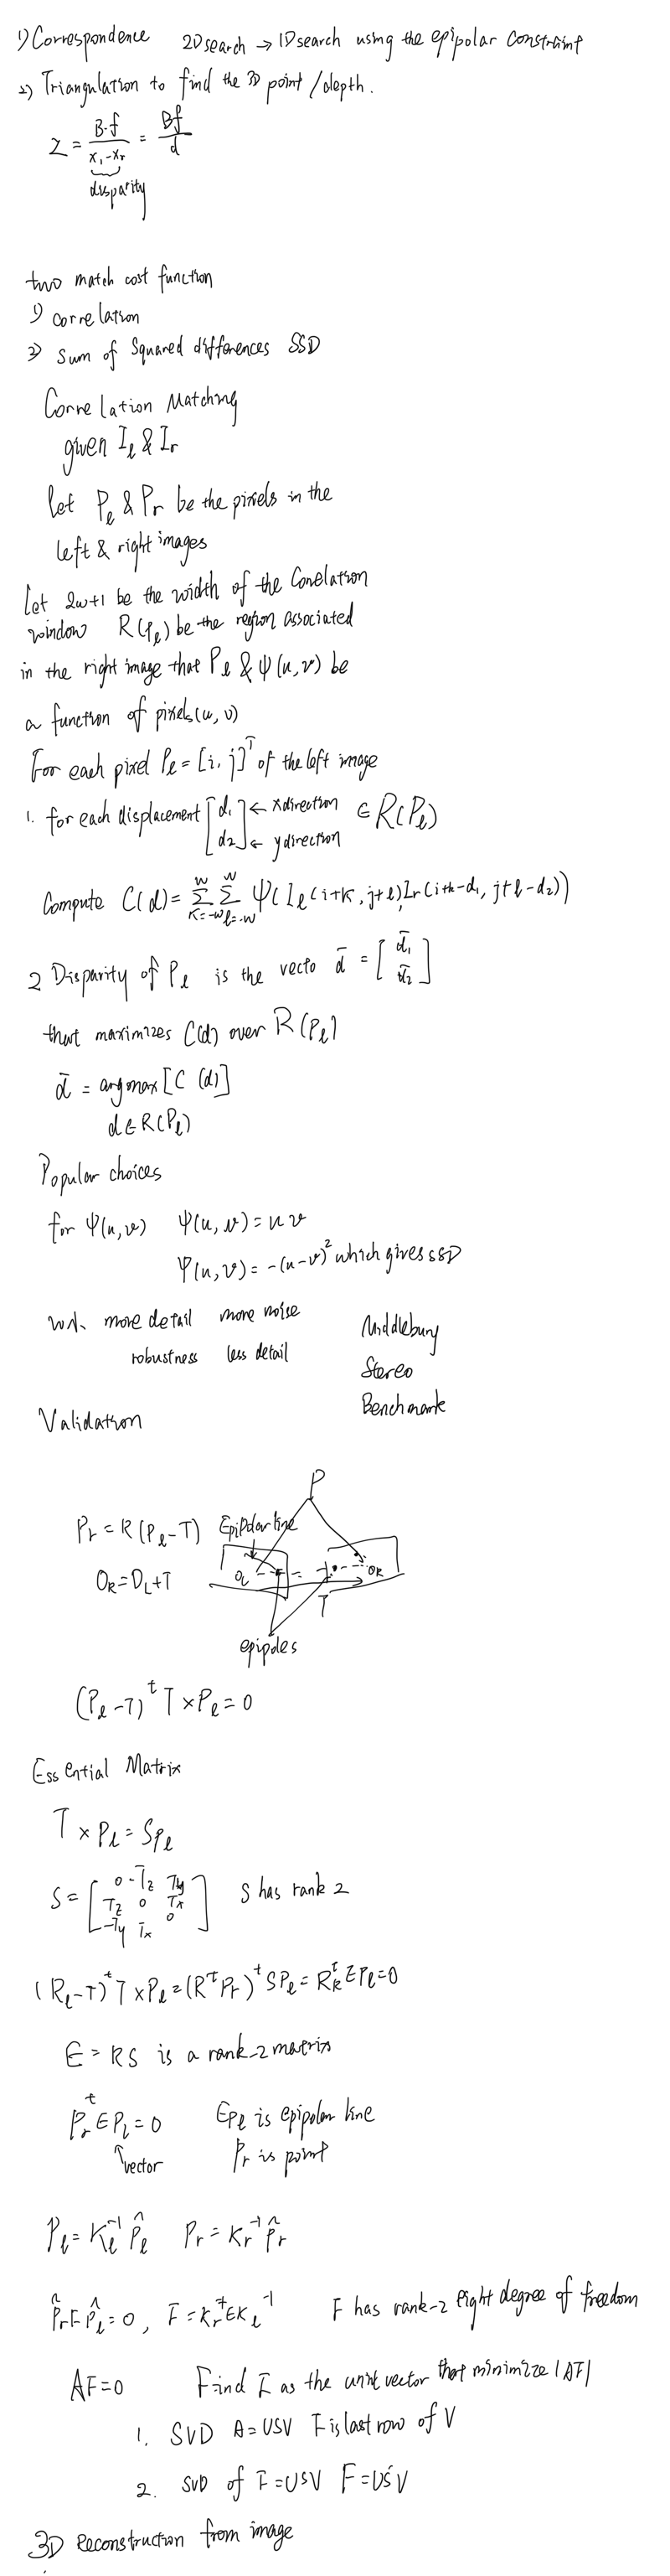 1) Correspondence 2D search → 1D search using the epipolar constraint
2) Triangulation to find the 3D point / depth.
Z = B·f / (x₁ - xᵣ) = Bf / d
disparity
two match cost function
1) correlation
2) Sum of Squared differences SSD
Correlation Matching
given Iₗ & Iᵣ
let Pₗ & Pᵣ be the pixels in the
left & right images
Let 2w+1 be the width of the Correlation
window R(Pₗ) be the region associated
in the right image that Pₗ & ψ(u, v) be
a function of pixels (u, v)
For each pixel Pₗ = [i, j]ᵀ of the left image
1. for each displacement [d₁ ← x direction
d₂] ← y direction ∈ R(Pₗ)
Compute C(d) = Σ_{K=-w}^{w} Σ_{l=-w}^{w} ψ(Iₗ(i+K, j+l), Iᵣ(i+k-d₁, j+l-d₂))
2 Disparity of Pₗ is the vecto d̄ = [d̄₁ d̄₂]
that maximizes C(d) over R(Pₗ)
d̄ = argmax [C (d)]
d∈R(Pₗ)
Popular choices
for ψ(u,v) ψ(u,v) = u v
ψ(u,v) = -(u-v)² which gives SSD
w↓ more detail more noise
robustness less detail
Middlebury
Stereo
Benchmark
Validation
P
Pᵣ = R(Pₗ - T) Epipolar line
O_R = O_L + T
O_L O_R
T
epipoles
(Pₗ - T)ᵗ T × Pₗ = 0
Essential Matrix
T × Pₗ = SPₗ
S = [0 -Tz Ty
Tz 0 Tx
-Ty Tx 0] S has rank 2
(Rₗ - T)ᵗ T × Pₗ = (RᵗPᵣ)ᵗ SPₗ = R_Rᵗ EPₗ = 0
E = RS is a rank-2 matrix
Pᵣᵗ EPₗ = 0 EPₗ is epipolar line
vector Pᵣ is point
Pₗ = Kₗ⁻¹ P̂ₗ Pᵣ = Kᵣ⁻¹ p̂ᵣ
P̂ᵣ F P̂ₗ = 0, F = Kᵣ⁻ᵗ E Kₗ⁻¹ F has rank-2 Eight degree of freedom
AF = 0 Find F as the unit vector that minimize |AF|
1. SVD A = USV F is last row of V
2. SVD of F = USV F = US'V
3D Reconstruction from image